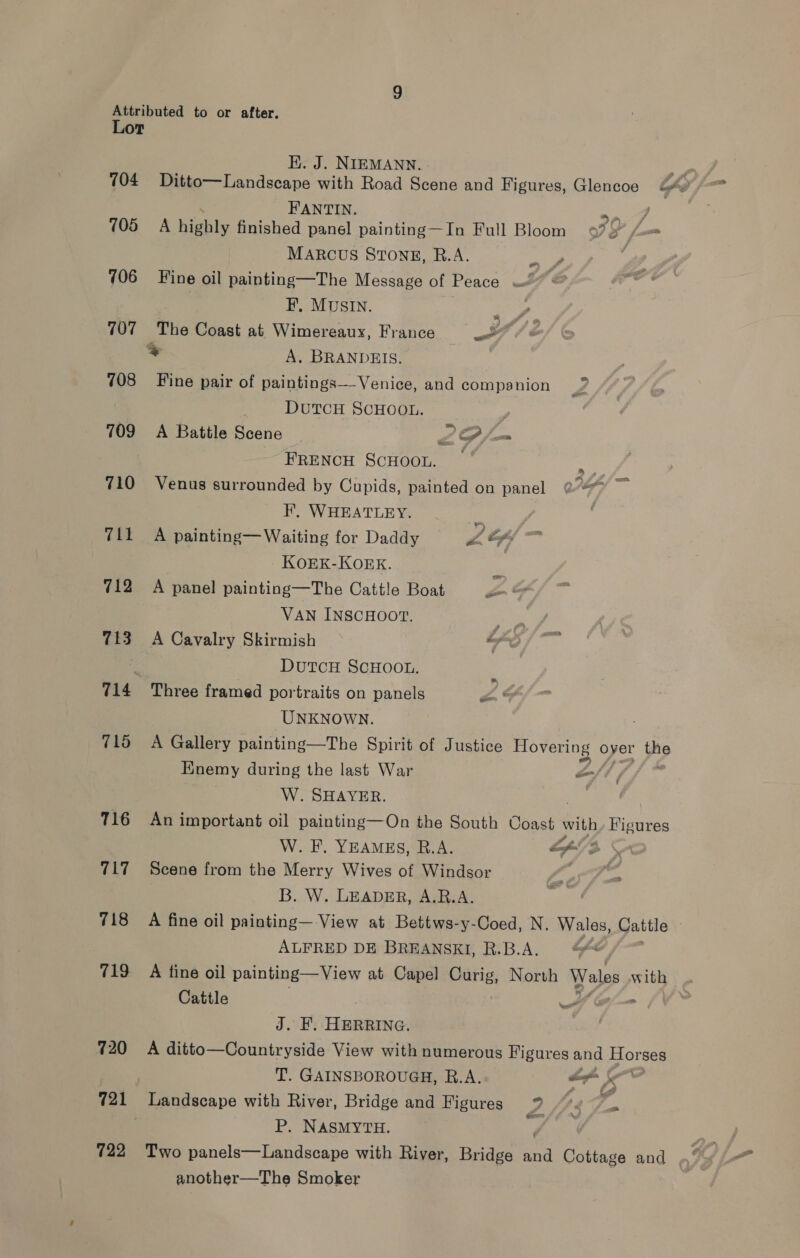 9
Attributed to or after.
Lot
E. J. NIEMANN.
704 Ditto—Landscape with Road Scene and Figures, Glencoe
FANTIN.
705 A highly finished panel painting—In Full Bloom
MARCUS STONE, R.A.
706 Fine oil painting—The Message of Peace
F. MUSIN.
707 The Coast at Wimereaux, France
A. BRANDEIS.
708 Fine pair of paintings—Venice, and companion
DUTCH SCHOOL.
709 A Battle Scene
FRENCH SCHOOL.
710 Venus surrounded by Cupids, painted on panel
F. WHEATLEY.
711 A painting—Waiting for Daddy
KOEK-KOEK.
712 A panel painting—The Cattle Boat
VAN INSCHOOT.
713 A Cavalry Skirmish
DUTCH SCHOOL.
714 Three framed portraits on panels
UNKNOWN.
715 A Gallery painting—The Spirit of Justice Hovering over the
Enemy during the last War
W. SHAYER.
716 An important oil painting—On the South Coast with Figures
W. F. YEAMES, R.A.
717 Scene from the Merry Wives of Windsor
B. W. LEADER, A.R.A.
718 A fine oil painting—View at Bettws-y-Coed, N. Wales, Cattle
ALFRED DE BREANSKI, R.B.A.
719 A fine oil painting—View at Capel Curig, North Wales with
Cattle
J. F. HERRING.
720 A ditto—Countryside View with numerous Figures and Horses
T. GAINSBOROUGH, R.A.
721 Landscape with River, Bridge and Figures
P. NASMYTH.
722 Two panels—Landscape with River, Bridge and Cottage and
another—The Smoker